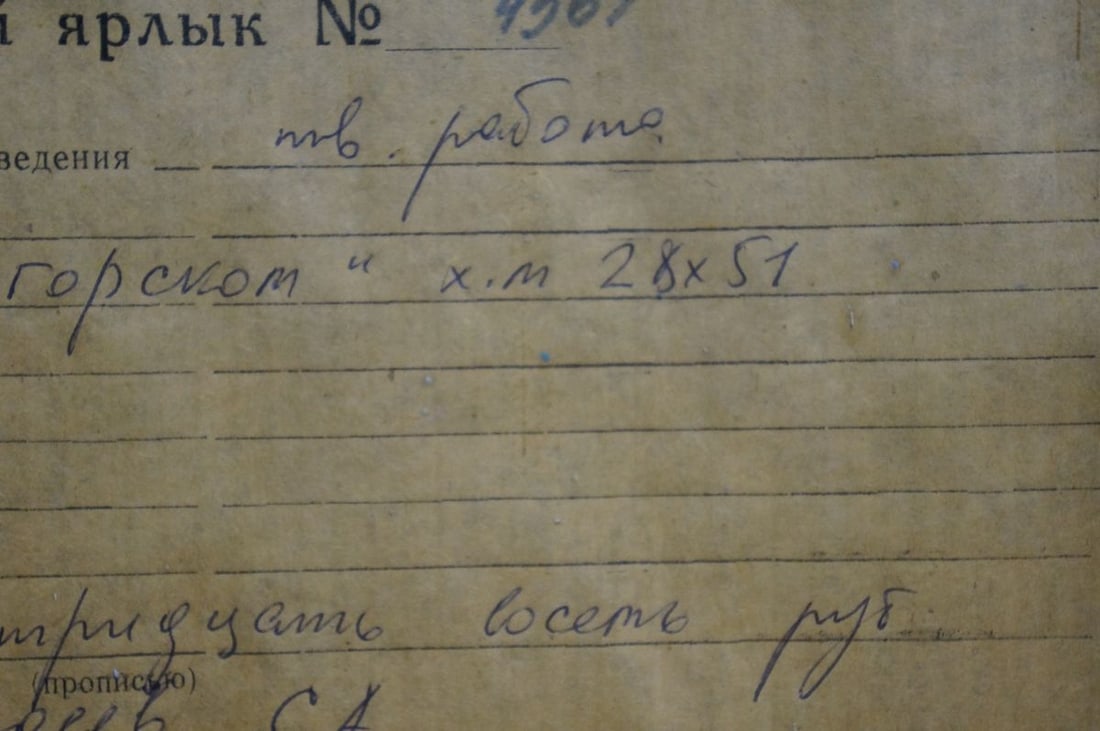 й ярлык №
ведения тв. работа
горском" х.м 28х51
тридцать восемь руб
(прописью)
С А